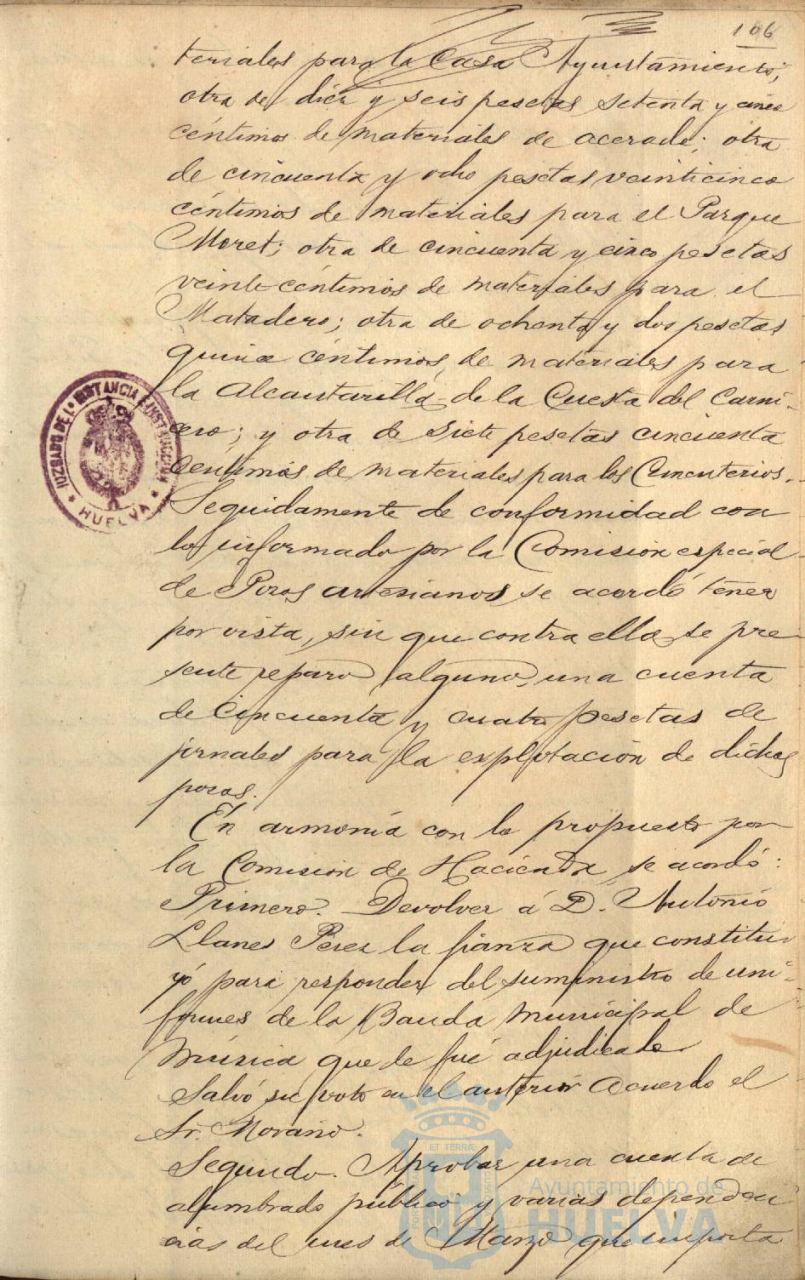 106
teriales para la Casa Ayuntamiento;
otra de diez y seis pesetas setenta y cinco
céntimos de materiales de acerado; otra
de cincuenta y ocho pesetas veinticinco
céntimos de materiales para el Parque
Moret; otra de cincuenta y cinco pesetas
veinte céntimos de materiales para el
Matadero; otra de ochenta y dos pesetas
quince céntimos, de materiales para
la Alcantarilla de la Cuesta del Carni-
cero; y otra de siete pesetas cincuenta
céntimos de materiales para los Cementerios.
Seguidamente de conformidad con
lo informado por la Comision especial
de Pozos artesianos se acordó tener
por vista, sin que contra ella se pre
sente reparo alguno, una cuenta
de cincuenta y cuatro pesetas de
jornales para la explotación de dichos
pozos.
En armonía con lo propuesto por
la Comisión de Hacienda, se acordó:
Primero. Devolver á D. Antonio
Llanes Perez la fianza que constitu-
yó para responder del suministro de uni-
formes de la Banda Municipal de
Música que le fué adjudicado
Salvó su voto en el anterior acuerdo el
Sr. Morano.
Segundo. Aprobar una cuenta de
alumbrado público y varias dependen
cias del mes de Marzo que importa
JUZGADO DE 1ª INSTANCIA E INSTRUCCIÓN
* HUELVA *
ET TERRAE
Ayuntamiento de
HUELVA